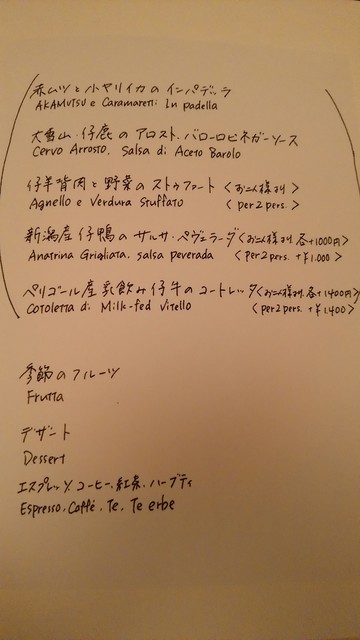 赤ムツと小ヤリイカのインパデッラ
AKAMUTSU e Caramaretti In padella
大雪山・仔鹿のアロスト、バローロビネガーソース
Cervo Arrosto, Salsa di Aceto Barolo
仔羊背肉と野菜のストゥファート <お二人様より>
Agnello e Verdura Stuffato <per 2 pers.>
新潟産仔鴨のサルサ・ペヴェラーダ<お二人様より 各+1000円>
Anatrina Grigliata, salsa peverada <per 2 pers. +¥1.000>
ペリゴール産乳飲み仔牛のコートレッタ<お二人様より 各+1400円>
Cotoletta di Milk-fed Vitello <per 2 pers. +¥1.400>
季節のフルーツ
Frutta
デザート
Dessert
エスプレッソ、コーヒー、紅茶、ハーブティ
Espresso, Caffé, Te, Te erbe